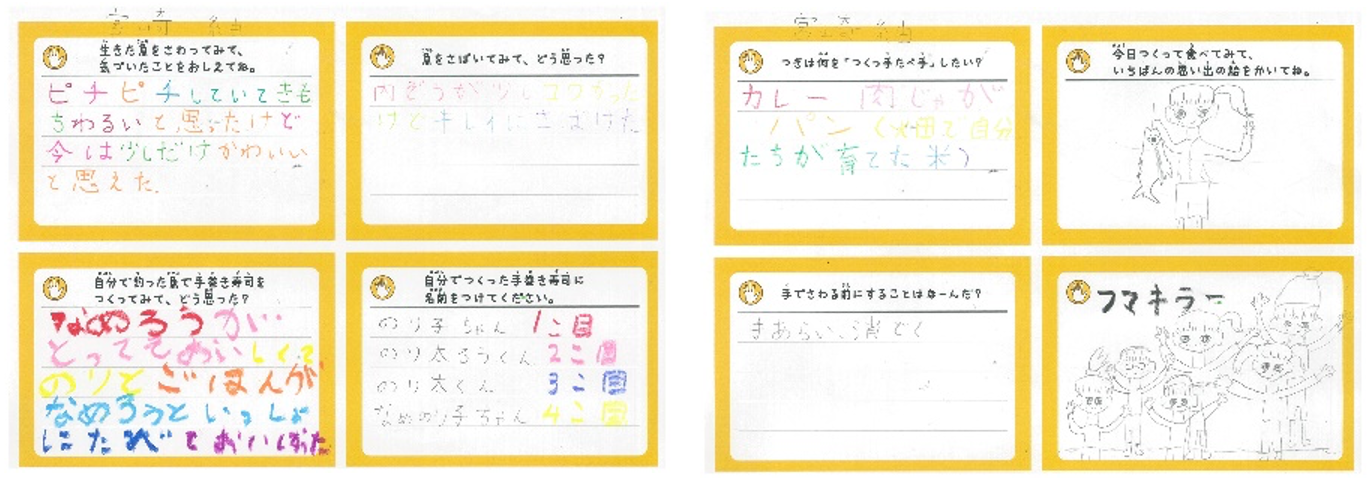 生きた魚をさわってみて、
気づいたことをおしえてね。
ピチピチしていてきも
ちわるいと思ったけど
今は少しだけかわいい
と思えた。
魚をさばいてみて、どう思った?
内ぞうが少しコワかった
けどキレイにさばけた
自分で釣った魚で手巻き寿司を
つくってみて、どう思った?
なめろうが
とってもおいしくて
のりとごはんが
なめろうといっしょ
にたべて
自分でつくった手巻き寿司に
名前をつけてください。
のり子ちゃん 1こ目
のり太ろうくん 2こ目
のり太くん 3こ目
なめのり子ちゃん 4こ目
つぎは何を「つくっ手たべ手」したい?
カレー 肉じゃが
パン (火田で自分
たちが育てた米)
今日つくって食べてみて、
いちばんの思い出の絵をかいてね。
手でさわる前にすることはなーんだ?
手あらい、消どく
フマキラー